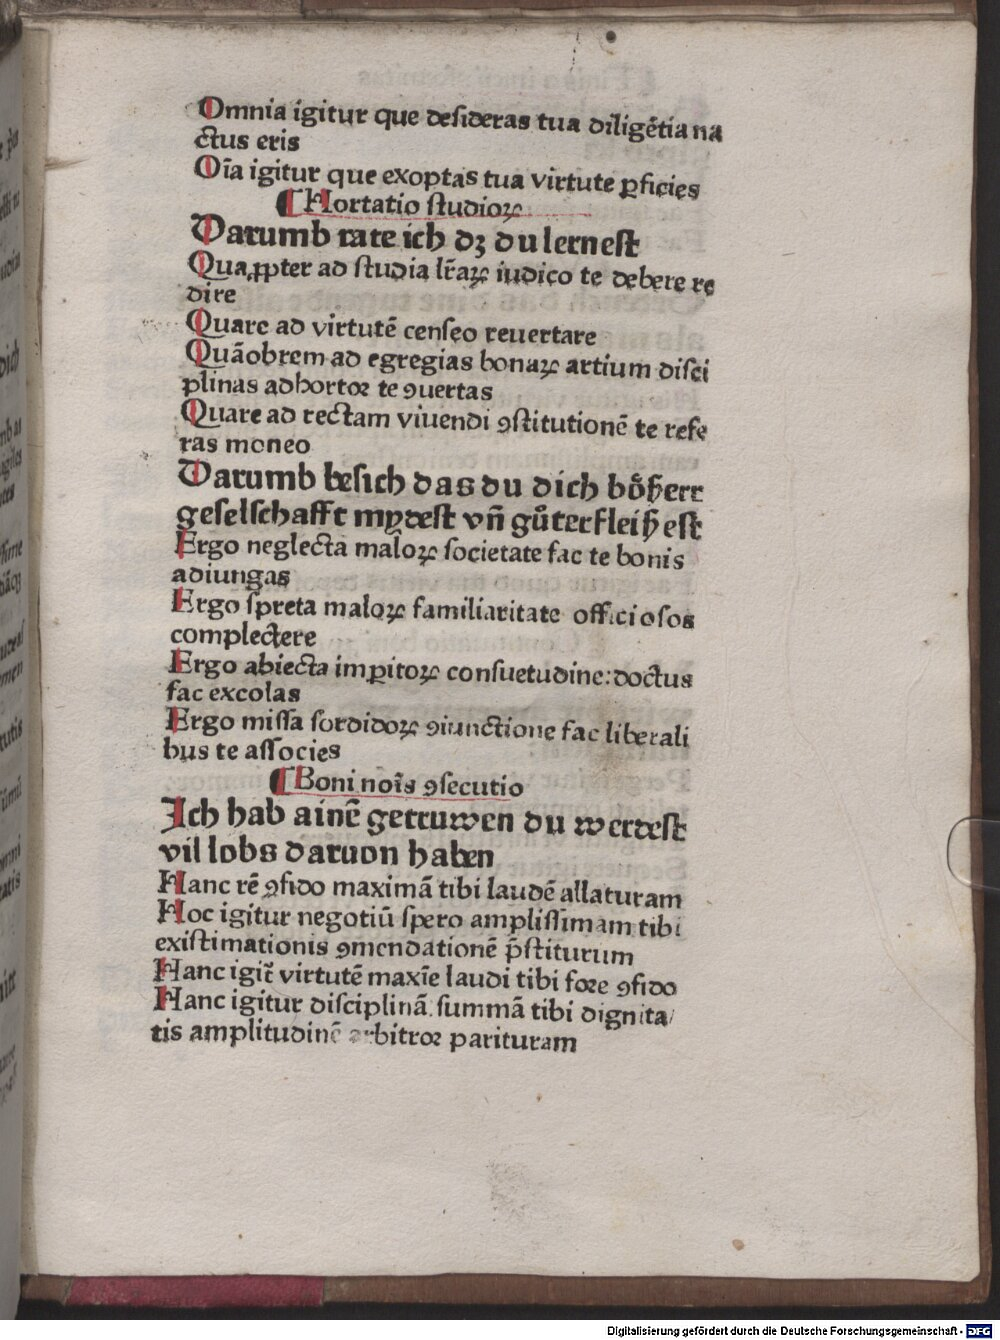 Omnia igitur que desideras tua diligētia na
ctus eris
Oīa igitur que exoptas tua virtute ꝑficies
¶ Hortatio studioꝝ
Darumb rate ich dꝫ du lernest
Quaꝓpter ad studia lr̄aꝝ iudico te debere re
dire
Quare ad virtutē censeo reuertare
Quāobrem ad egregias bonaꝝ artium disci
plinas adhortor te ꝯuertas
Quare ad rectam viuendi ꝯstitutionē te refe
ras moneo
Darumb besich das du dich bößerr
geselschafft mydest vn̄ gůter fleißest
Ergo neglecta maloꝝ societate fac te bonis
adiungas
Ergo spreta maloꝝ familiaritate officiosos
complectere
Ergo abiecta imꝑitoꝝ consuetudine: doctus
fac excolas
Ergo missa sordidoꝝ ꝯiunctione fac liberali
bus te associes
¶ Boni noīs ꝯsecutio
Ich hab ainē getruwen du werdest
vil lobs daruon haben
Hanc rē ꝯfido maximā tibi laudē allaturam
Hoc igitur negotiū spero amplissimam tibi
existimationis ꝯmendationē p̄stiturum
Hanc igit̄ virtutē maxīe laudi tibi fore ꝯfido
Hanc igitur disciplinā summā tibi dignita/
tis amplitudinē arbitror parituram
Digitalisierung gefördert durch die Deutsche Forschungsgemeinschaft - DFG